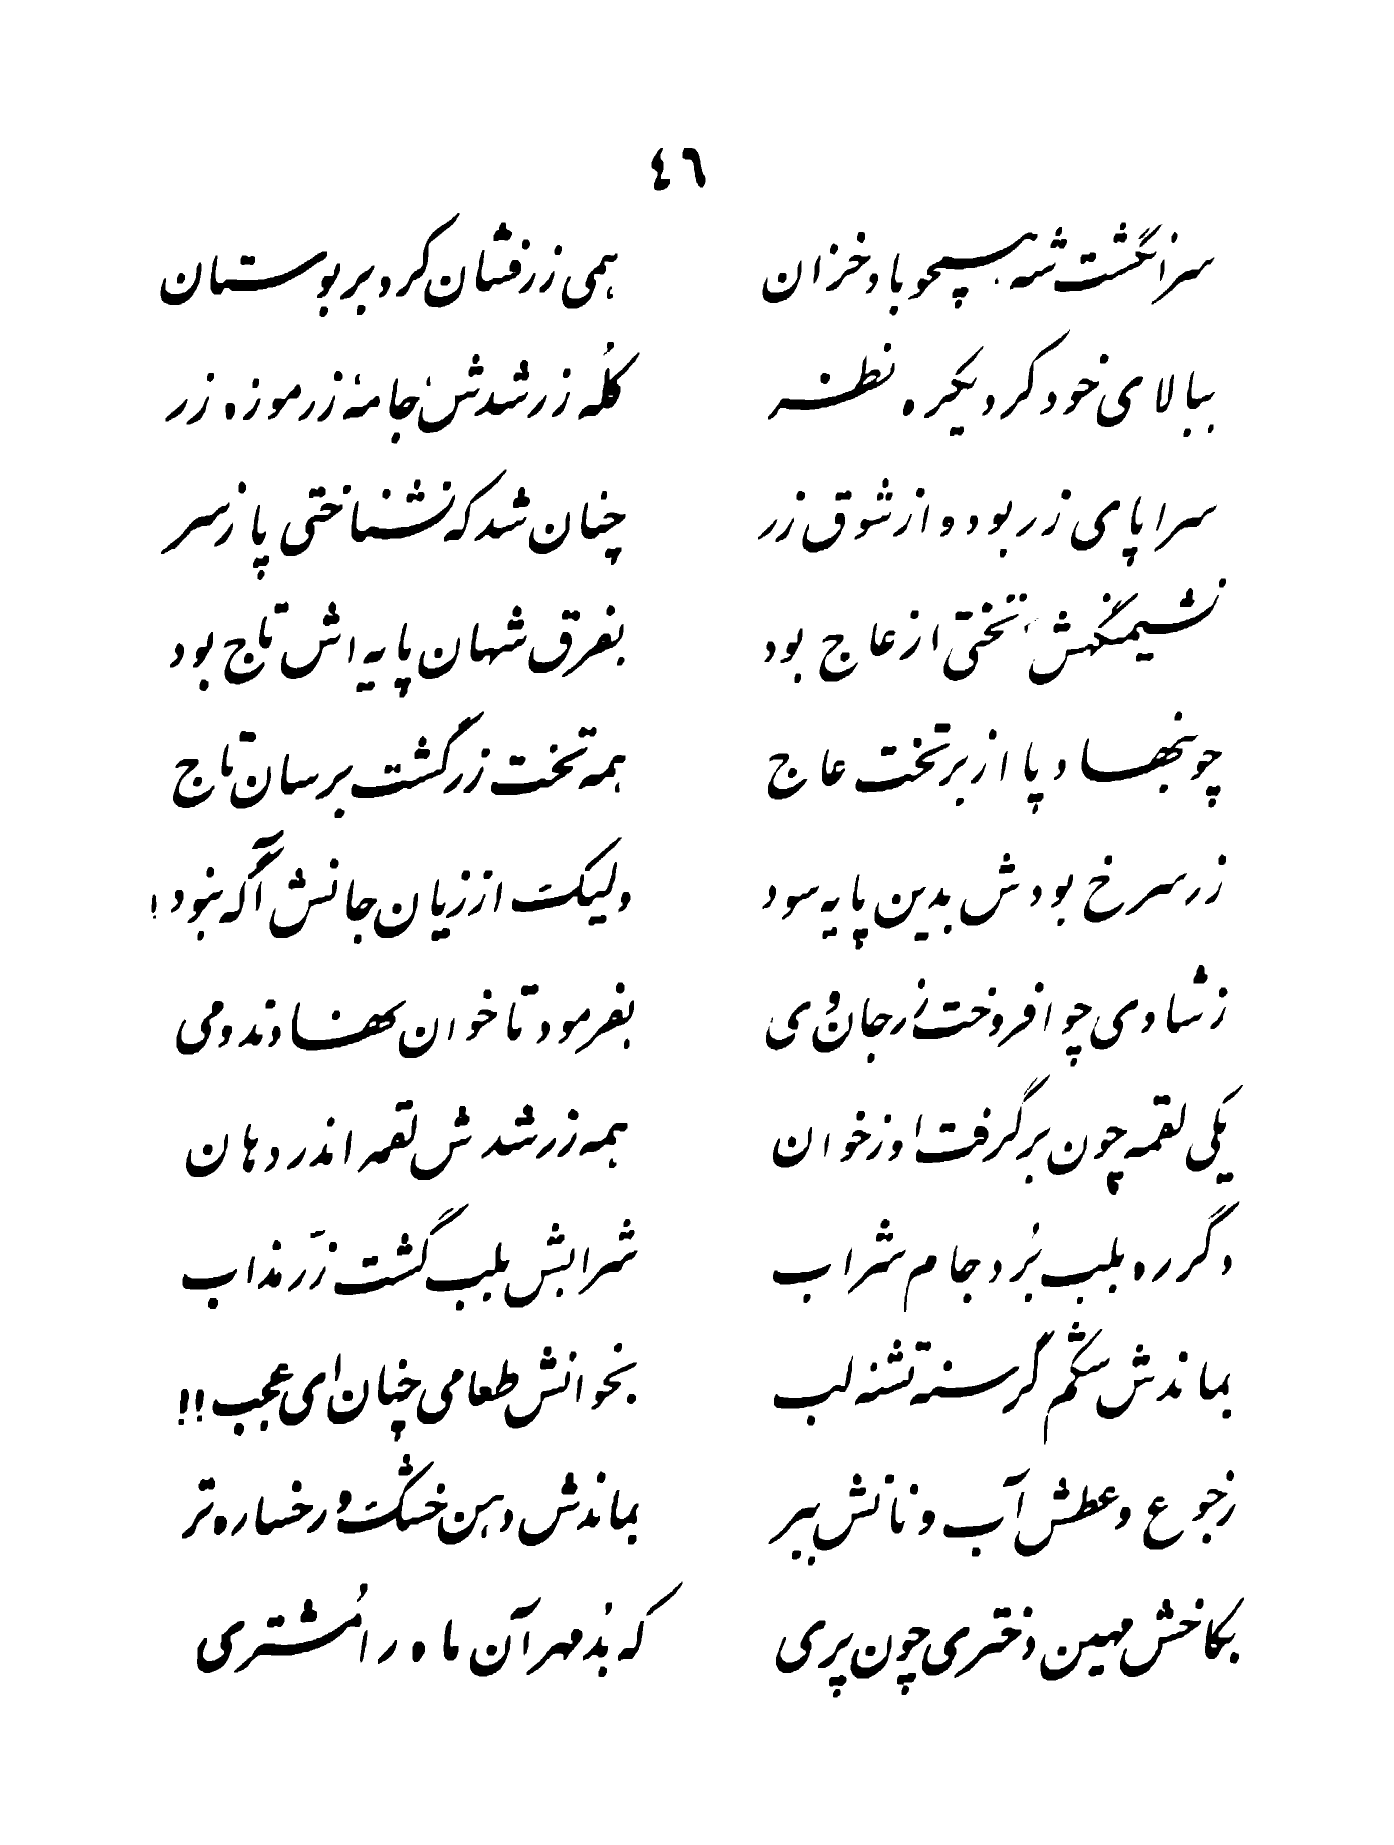 ٤٦
سرانگشت شه همچو باد خزان همی زرفشان کرد بر بوستان
ببالای خود کرد یکره نظر کُله زر شدش جامهٔ زر موزه زر
سراپای زر بود و از شوق زر چنان شد که نشناختی پا ز سر
نشیمنگهش تختی از عاج بود بفرق شهان پایه اش تاج بود
چو بنهاد پا از بر تخت عاج همه تخت زر گشت برسان تاج
زر سرخ بودش بدین پایه سود ولیکت از زیان جانش آگه نبود!
ز شادی چو افروخت زر جان وی بفرمود تا خوان نهادند و می
یکی لقمه چون برگرفت او ز خوان همه زر شدش لقمه اندر دهان
دگر ره بلب بُرد جام شراب شرابش بلب گشت زرّ مذاب
بماندش شکم گرسنه تشنه لب بخوانش طعامی چنان ای عجب!!
ز جوع و عطش آب و نانش ببر بماندش دهن خشک و رخساره تر
بکاخش مهین دختری چون پری که بُد مهر آن ماه را مُشتری